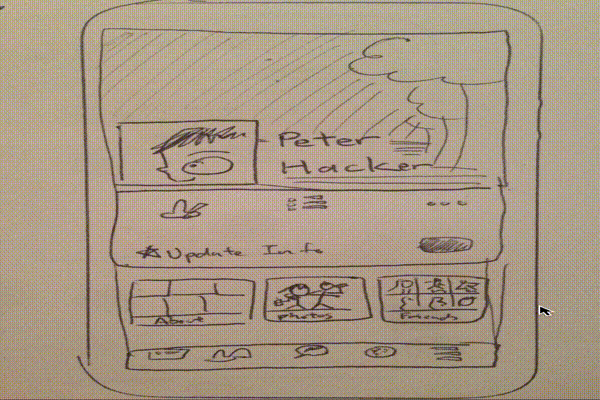 Peter
Hacker
Update Info
About
Photos
Friends